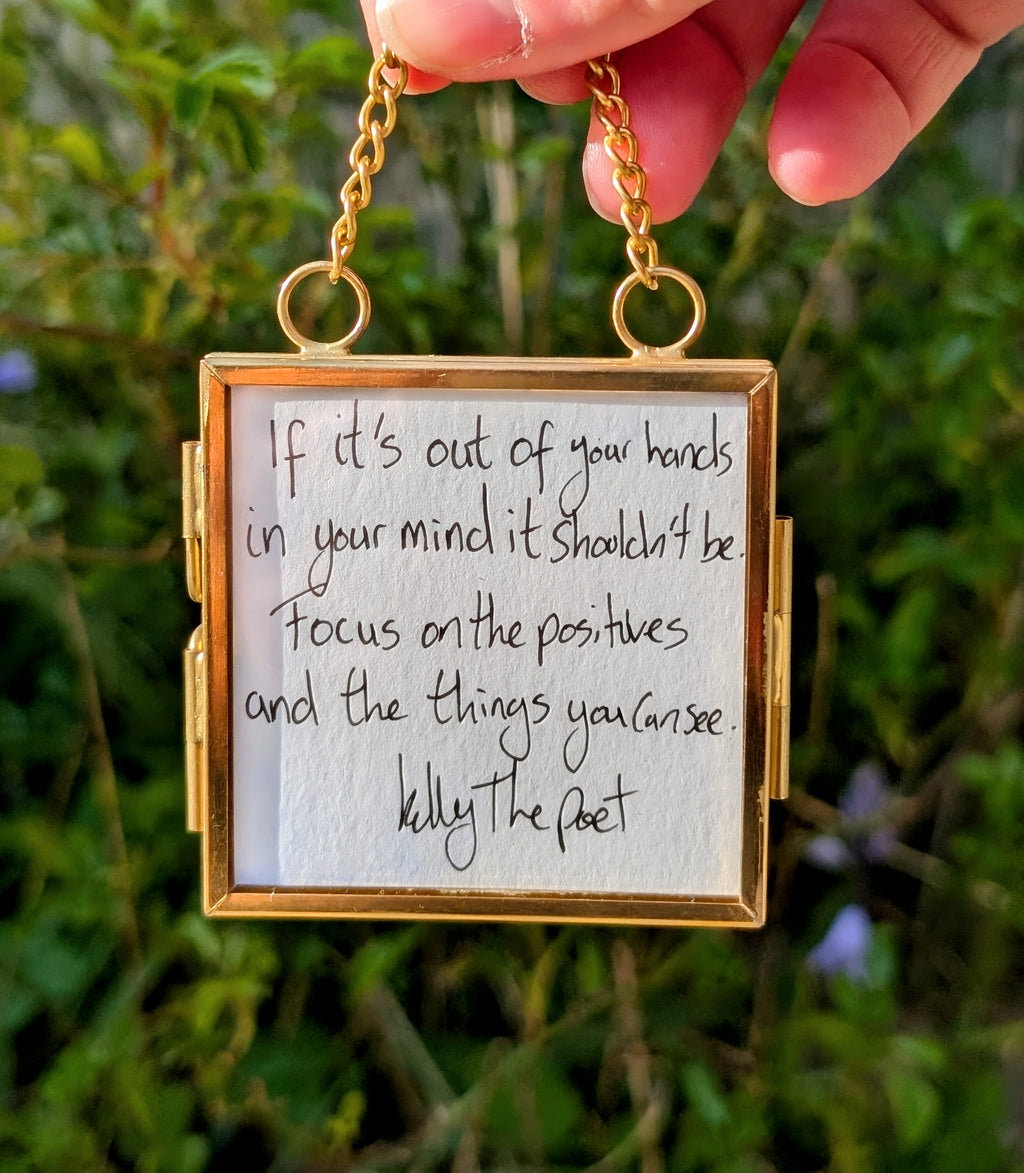 If it's out of your hands
in your mind it shouldn't be.
Focus on the positives
and the things you can see.
Kelly The Poet